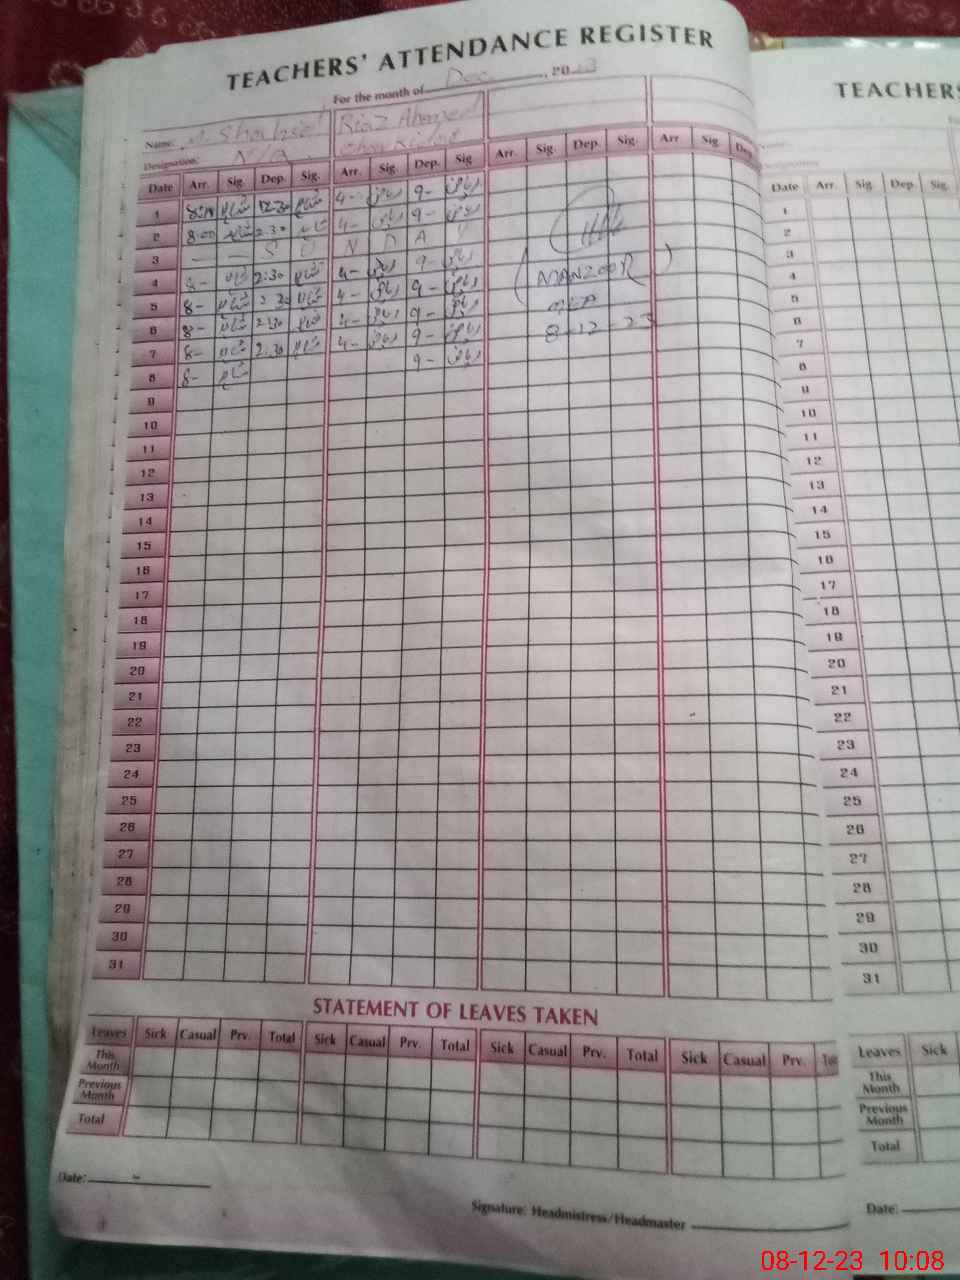 TEACHERS' ATTENDANCE REGISTER
For the month of Dec, 2023
Name: M. Shahid Riaz Ahmed
Designation: N/Q Chowkidar
Date Arr. Sig. Dep. Sig. Arr. Sig. Dep. Sig. Arr. Sig. Dep. Sig. Arr Sig. Dep.
1 8:00 شاہد 12:30 شاہد 4- ریاض 9- ریاض
2 8:00 شاہد 2:30 شاہد 4- ریاض 9- ریاض
3 — — S U N D A Y
4 8- شاہد 2:30 شاہد 4- ریاض 9- ریاض
5 8- شاہد 2:30 شاہد 4- ریاض 9- ریاض
6 8- شاہد 2:30 شاہد 4- ریاض 9- ریاض
7 8- شاہد 2:30 شاہد 4- ریاض 9- ریاض
8 8- شاہد 9- ریاض
(MANZOOR)
8-12-23
9
10
11
12
13
14
15
16
17
18
19
20
21
22
23
24
25
26
27
28
29
30
31
STATEMENT OF LEAVES TAKEN
Leaves Sick Casual Prv. Total Sick Casual Prv. Total Sick Casual Prv. Total Sick Casual Prv.
This Month
Previous Month
Total
Date:
Signature: Headmistress/Headmaster
TEACHERS
Date Arr. Sig. Dep. Sig.
1
2
3
4
5
6
7
8
9
10
11
12
13
14
15
16
17
18
19
20
21
22
23
24
25
26
27
28
29
30
31
Leaves Sick
This Month
Previous Month
Total
Date:
08-12-23 10:08